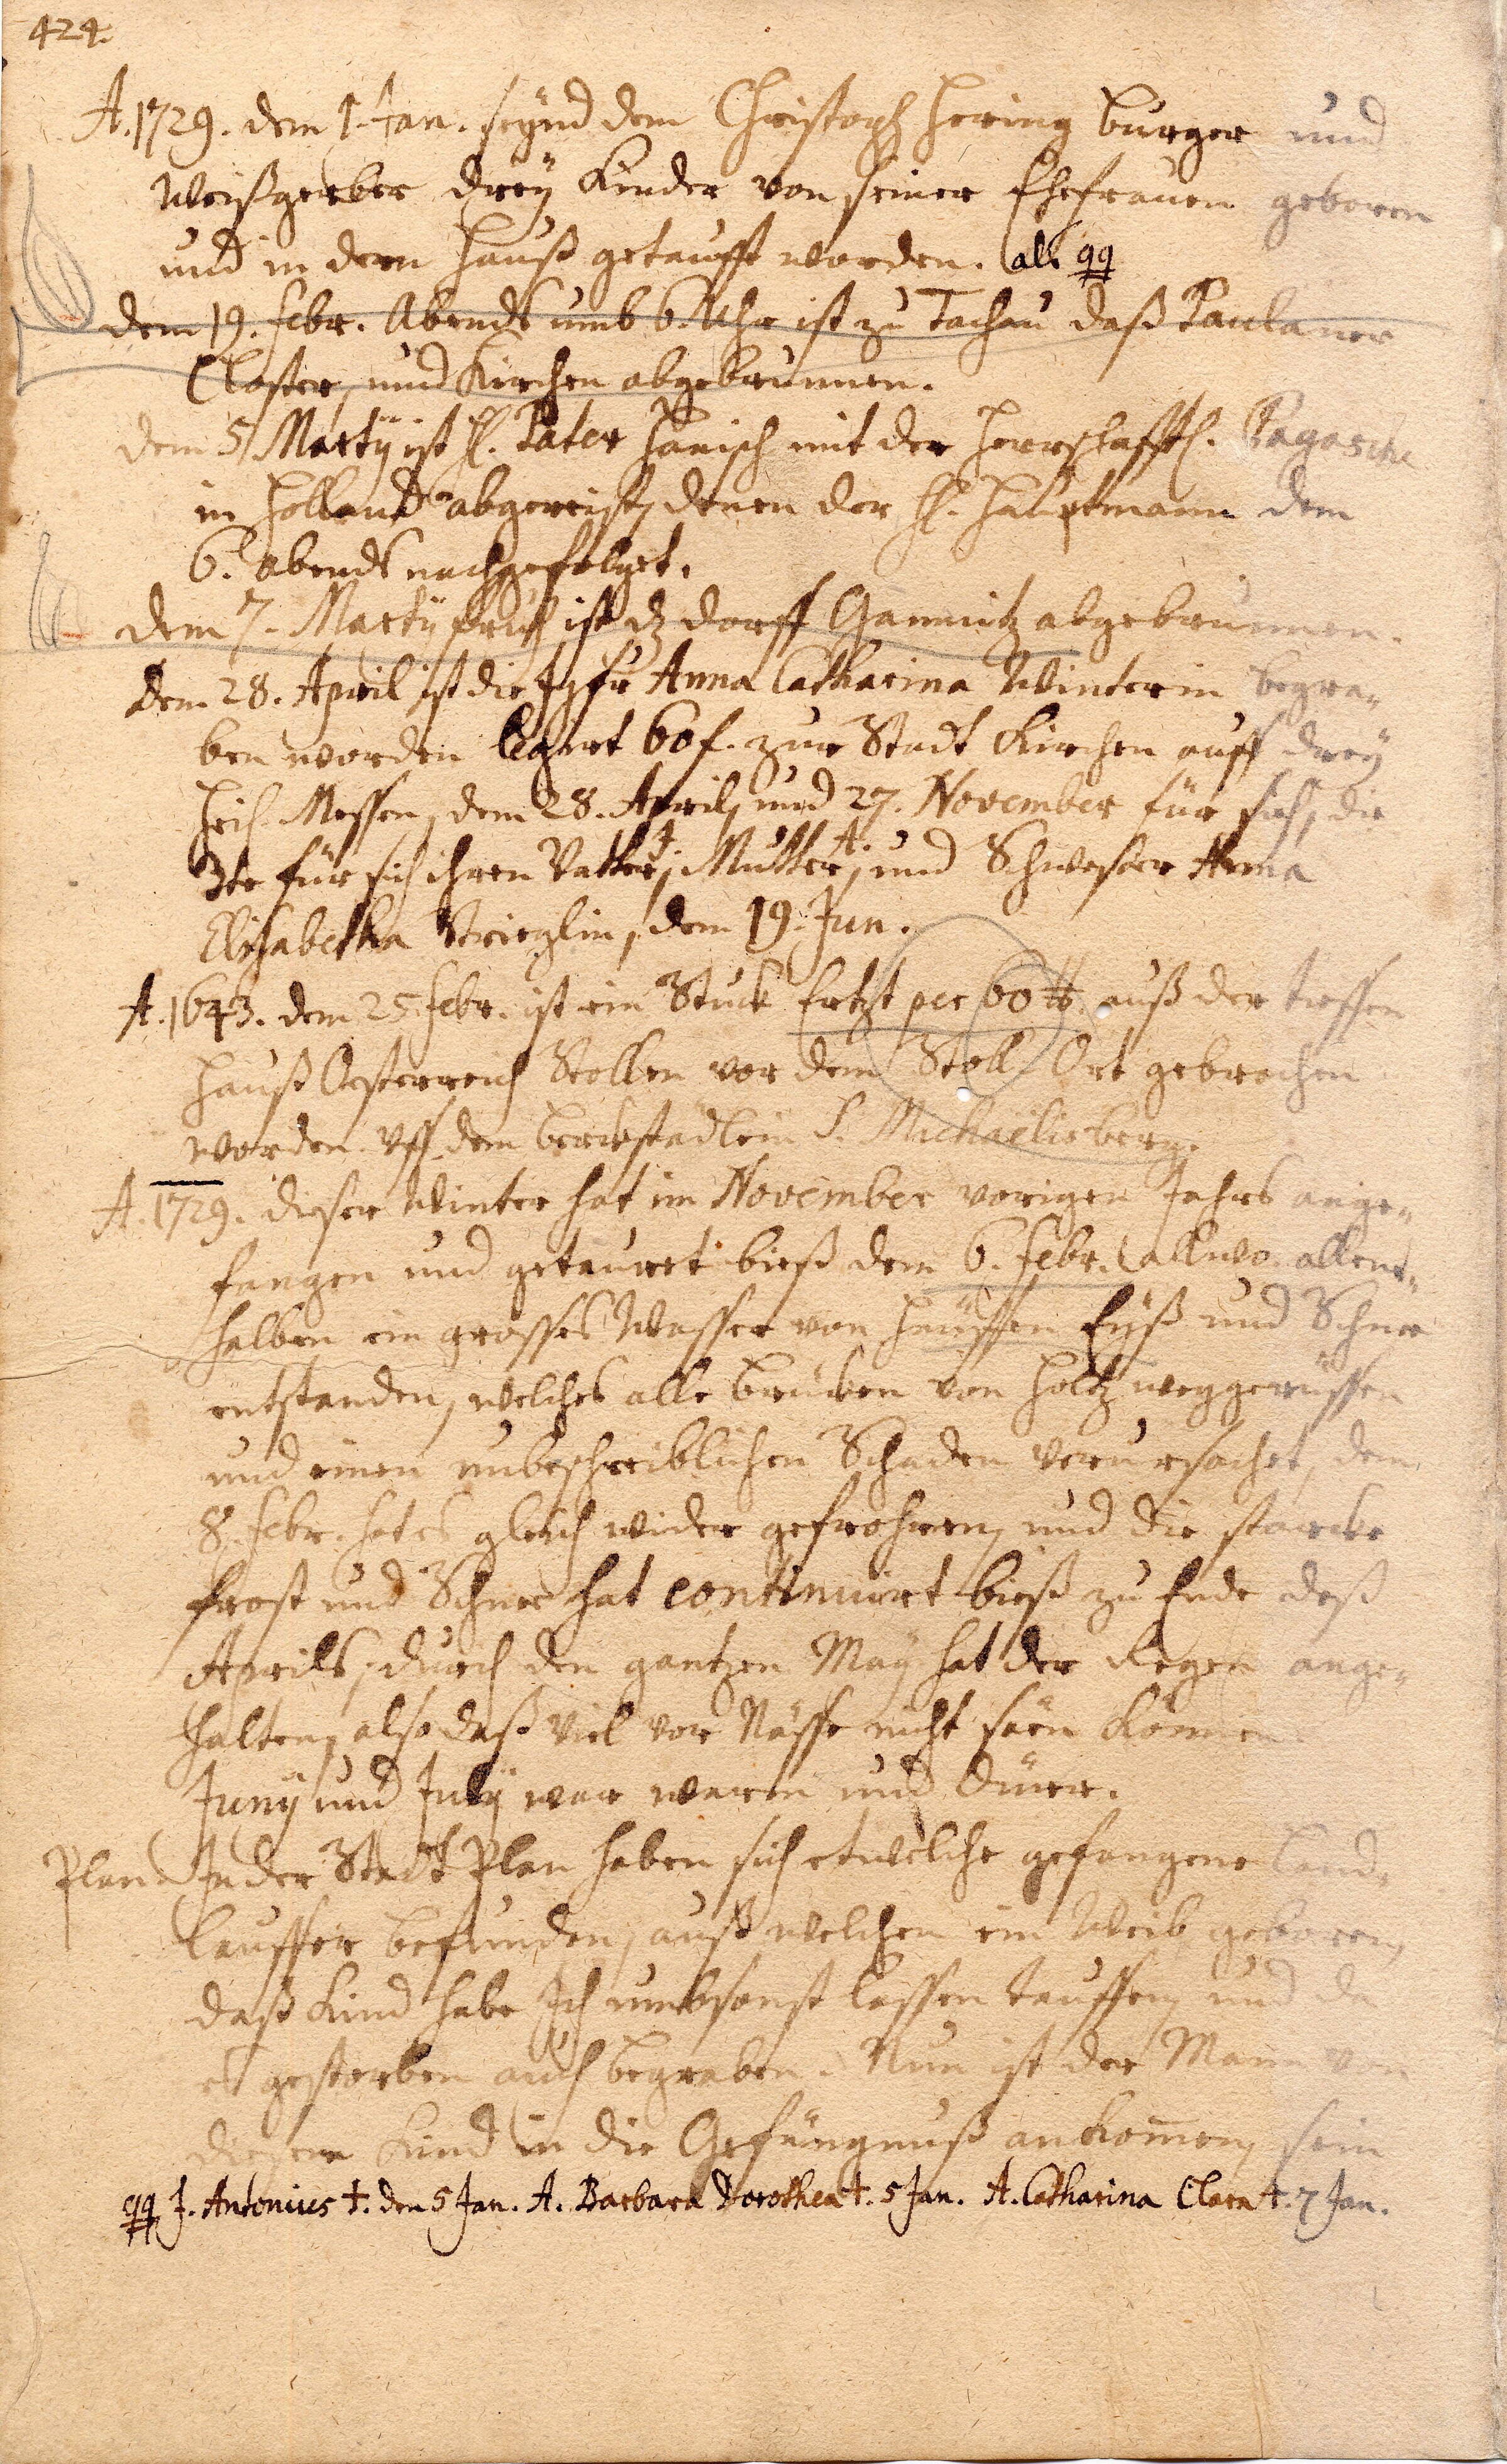 424.
A. 1729. dem 1. Jan. seynd dem Christoph Hering burger und
Weißgerber drey Kinder von seiner Ehefrauen geboren
und in dem Hauß getaufft worden. als qq
dem 19. Febr. Abends umb 6. Uhr ist zu Tachau daß Paulaner
Closter, und Kirchen abgebrunnen.
dem 5 Martÿ ist H. Pater Hanisch mit der Herrschafftl. Pagasche
in Holland abgereist, denen der H. Hauptmann dem
6. abends nachgefolget.
dem 7. Martÿ fruh ist dz dorff Gamnitz abgebrunnen.
dem 28. April ist die Jgfr Anna Catharina Winterin begra-
ben worden legirt 60 f. zur Stadt Kirchen auff drey
Heil. Messen, dem 28. April, und 27. November für sich, die
3te für sich ihren Vatter J., Mutter A., und Schwester Anna
Elisabetha Strieglin, dem 19. Jun.
A. 1643. dem 25 Febr. ist ein Stuck Ertzt per 60 ℔. auß der tieffen
Hauß Oesterreich Stollen vor dem Stoll Ort gebrochen
worden. Uff dem berckstädtlein S. Michaëlisberg.
A. 1729. dieser Winter hat im November vorigen Jahrs ange-
fangen und getauret bieß dem 6. Febr. allwo allent-
halben ein grosses Wasser von Hauffen Eyß und Schnee
entstanden, welches alle brucken von Holtz weggerüssen
und einen unbeschreiblichen Schaden verursachet, dem
8. Febr. hat es gleich wider gefrohren, und die starcke
Frost und Schnee hat continuirt bieß zu Ende deß
Aprils, durch den gantzen May hat der Regen ange-
halten, also daß viel vor Nässe nicht säen können
Junÿ und Julÿ war warm und dürr.
Plan. In der Stadt Plan haben sich etwelche gefangene Land-
lauffer befunden, auß welchen ein Weib geboren,
daß Kind habe Ich umbsonst lassen tauffen, und da
es gestorben auch begraben. Nun ist der Mann von
diesem Kind in die Gefängnuß ankom̄en, sein
qq J. Antonius †. den 5 Jan. A. Barbara Dorothea †. 5 Jan. A. Catharina Clara †. 7 Jan.